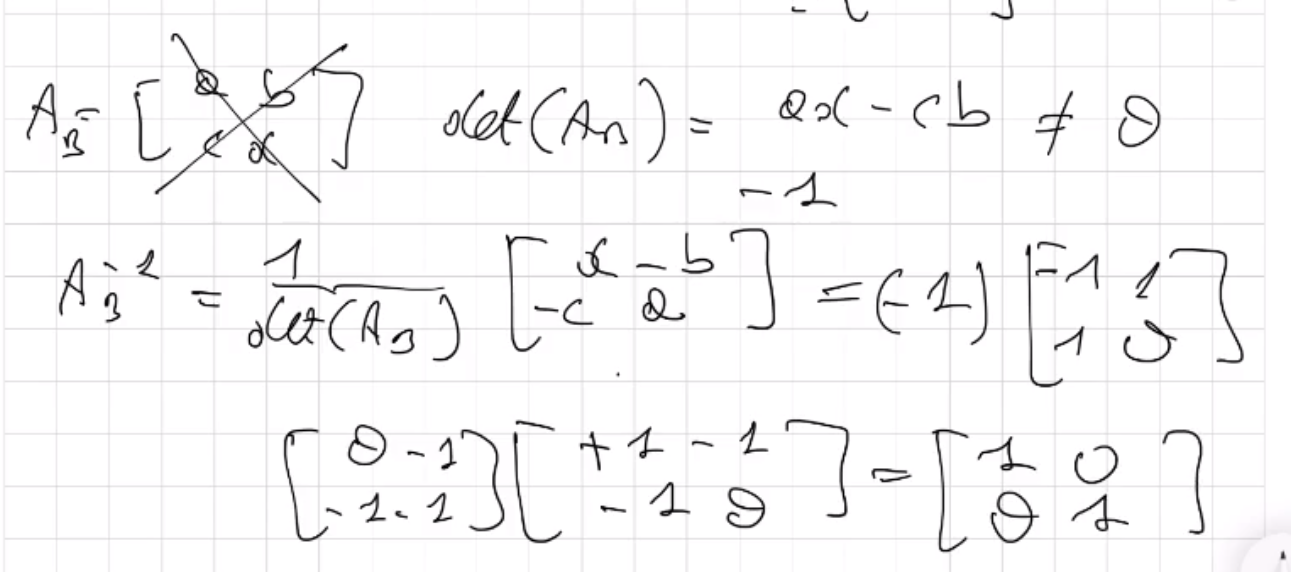 A_B = [ a b ; c d ] det(A_B) = ad - cb ≠ 0
-1
A_B^{-1} = 1/det(A_B) [ d -b ; -c a ] = (-1) [ -1 1 ; 1 0 ]
[ 0 -1 ; -1 -1 ] [ +1 -1 ; -1 0 ] = [ 1 0 ; 0 1 ]